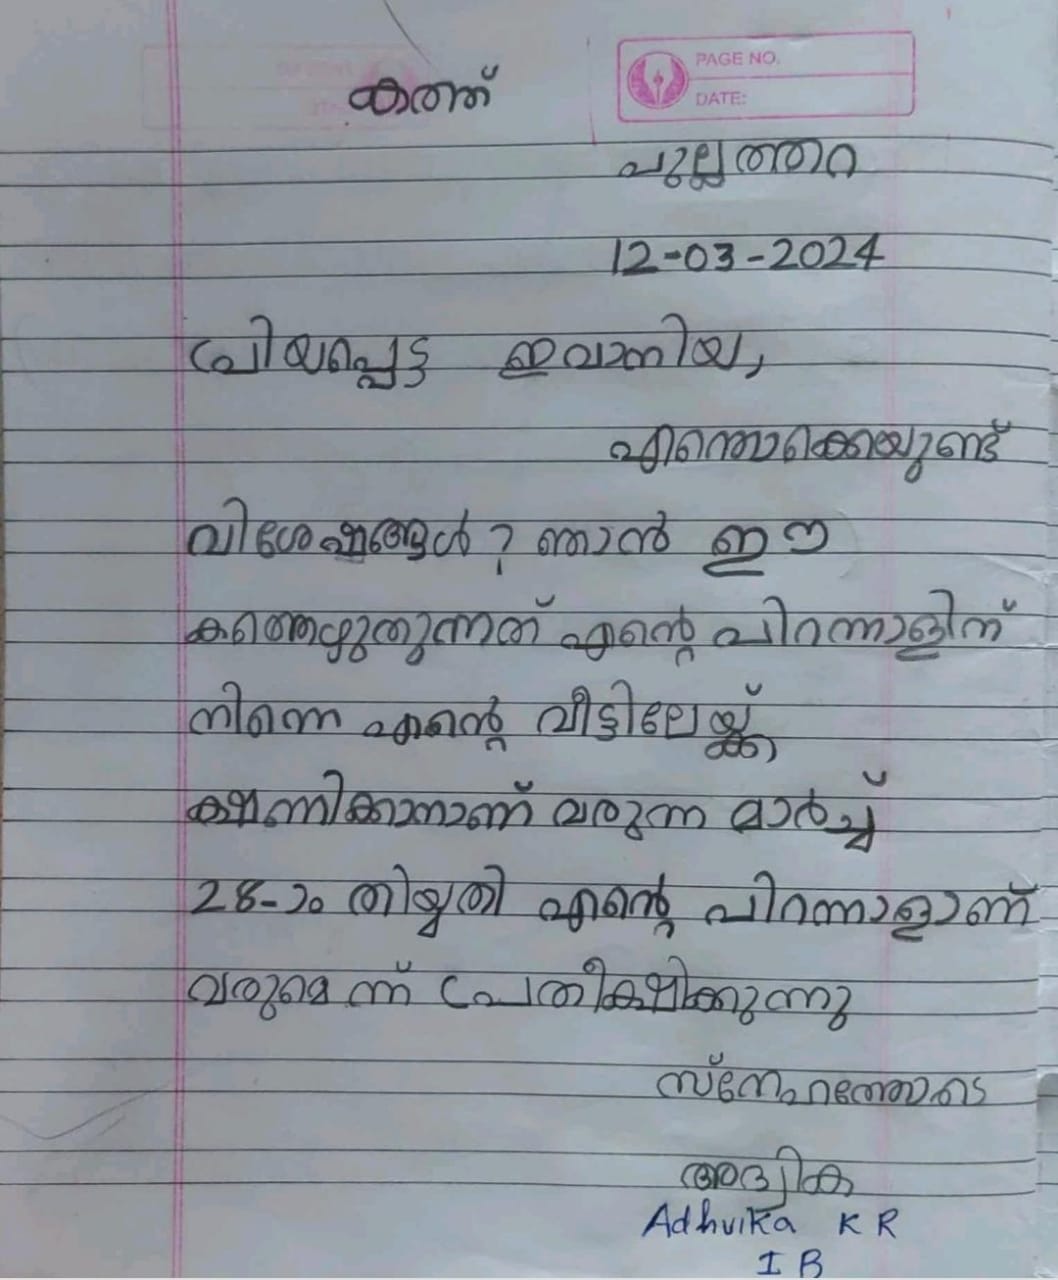 കത്ത്
PAGE NO.
DATE:
പുല്ലത്തറ
12-03-2024
പ്രിയപ്പെട്ട ഇവാനിയ,
എന്തൊക്കെയുണ്ട്
വിശേഷങ്ങൾ? ഞാൻ ഈ
കത്തെഴുതുന്നത് എന്റെ പിറന്നാളിന്
നിന്നെ എന്റെ വീട്ടിലേയ്ക്ക്
ക്ഷണിക്കാനാണ് വരുന്ന മാർച്ച്
28-ാം തിയ്യതി എന്റെ പിറന്നാളാണ്
വരുമെന്ന് പ്രതീക്ഷിക്കുന്നു
സ്നേഹത്തോടെ
അദ്വിക
Adhvika K R
I B